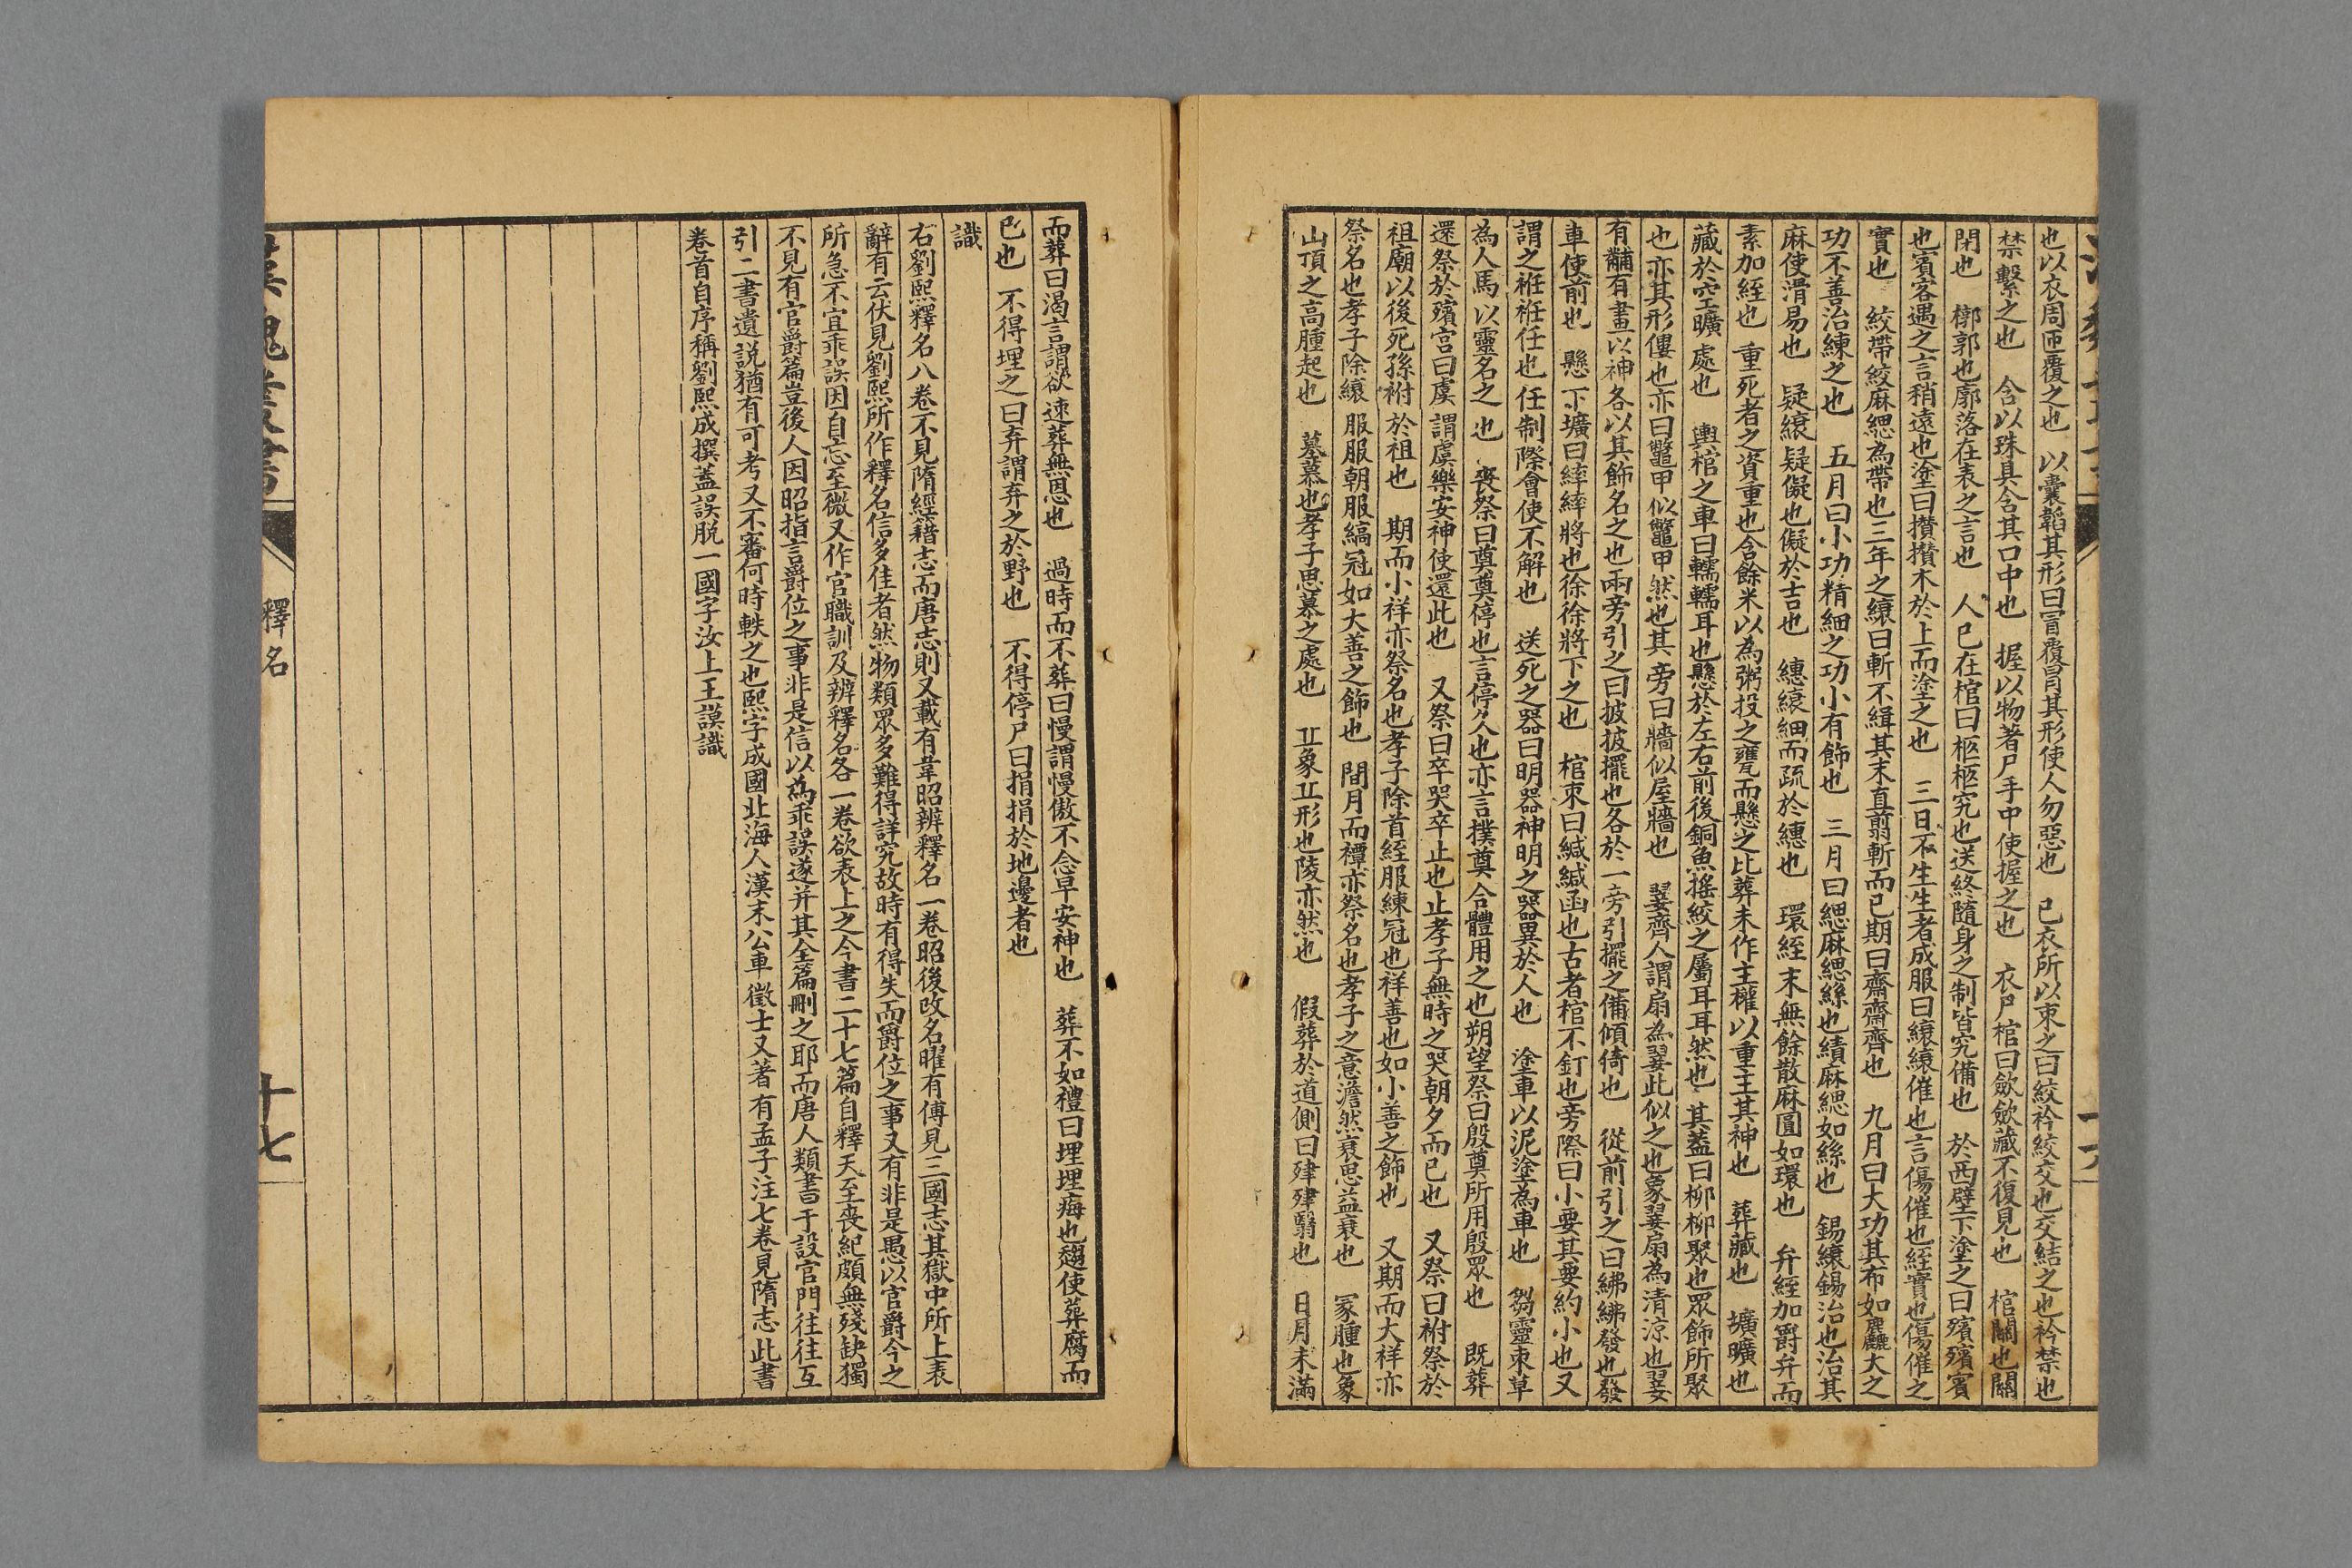 也以衣周匝覆之也　以囊韜其形曰冒覆冒其形使人勿惡也　已衣所以束之曰絞衿絞交也交結之也衿禁也
禁繫之也　含以珠具含其口中也　握以物著尸手中使握之也　衣尸棺曰歛歛藏不復見也　棺關也關
閉也　槨郭也廓落在表之言也　人已在棺曰柩柩究也送終隨身之制皆究備也　於西壁下塗之曰殯殯賓
也賓客遇之言稍遠也塗曰攢攢木於上而塗之也　三日不生生者成服曰縗縗催也言傷催也絰實也傷催之
實也　絞帶絞麻緦為帶也三年之縗曰斬不緝其末直翦斬而已期曰齋齋齊也　九月曰大功其布如麤大之
功不善治練之也　五月曰小功精細之功小有飾也　三月曰緦麻緦絲也績麻緦如絲也　錫縗錫治也治其
麻使滑易也　疑縗疑儗也儗於吉也　繐縗細而疏於繐也　環絰末無餘散麻圓如環也　弁絰加爵弁而
素加絰也　重死者之資重也含餘米以為粥投之甕而懸之比葬未作主權以重主其神也　葬藏也　壙曠也
藏於空曠處也　輿棺之車曰轜轜耳也懸於左右前後銅魚搖絞之屬耳耳然也　其蓋曰柳柳聚也眾飾所聚
也亦其形僂也亦曰鼈甲似鼈甲然也其旁曰牆似屋牆也　翣齊人謂扇為翣此似之也象翣扇為清涼也翣
有黼有畫以神各以其飾名之也兩旁引之曰披披擺也各於一旁引擺之備傾倚也　從前引之曰紼紼發也發
車使前也　懸下壙曰繂繂將也徐徐將下之也　棺束曰緘緘函也古者棺不釘也旁際曰小要其要約小也又
謂之袵袵任也任制際會使不解也　送死之器曰明器神明之器異於人也　塗車以泥塗為車也　芻靈束草
為人馬以靈名之也　喪祭曰奠奠停也言停久也亦言撲奠合體用之也朔望祭曰殷奠所用殷眾也　既葬
還祭於殯宮曰虞謂虞樂安神使還此也　又祭曰卒哭卒止也止孝子無時之哭朝夕而已也　又祭曰祔祭於
祖廟以後死孫祔於祖也　期而小祥亦祭名也孝子除首絰服練冠也祥善也如小善之飾也　又期而大祥亦
祭名也孝子除縗服服朝服縞冠如大善之飾也　間月而禫亦祭名也孝子之意澹然哀思益衰也　冢腫也象
山頂之高腫起也　墓慕也孝子思慕之處也　丘象丘形也陵亦然也　假葬於道側曰肂肂翳也　日月未滿
而葬曰渴言謂欲速葬無恩也　過時而不葬曰慢謂慢傲不念早安神也　葬不如禮曰埋埋痗也趨使葬腐而
已也　不得埋之曰弃謂弃之於野也　不得停尸曰捐捐於地邊者也
識
右劉熙釋名八卷不見隋經籍志而唐志則又載有韋昭辨釋名一卷昭後改名曜有傳見三國志其獄中所上表
辭有云伏見劉熙所作釋名信多佳者然物類眾多難得詳究故時有得失而爵位之事又有非是愚以官爵今之
所急不宜乖誤因自忘至微又作官職訓及辨釋名各一卷欲表上之今書二十七篇自釋天至喪紀頗無殘缺獨
不見有官爵篇豈後人因昭指言爵位之事非是信以為乖誤遂并其全篇刪之耶而唐人類書于設官門往往互
引二書遺説猶有可考又不審何時軼之也熙字成國北海人漢末公車徵士又著有孟子注七卷見隋志此書
卷首自序稱劉熙成撰蓋誤脱一國字汝上王謨識
漢魏叢書　釋名　十七